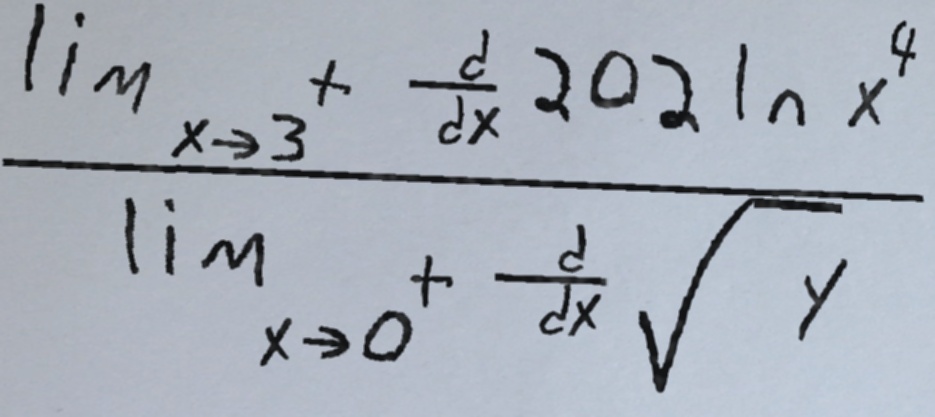 lim x→3⁺ d/dx 202 ln x⁴
lim x→0⁺ d/dx √y